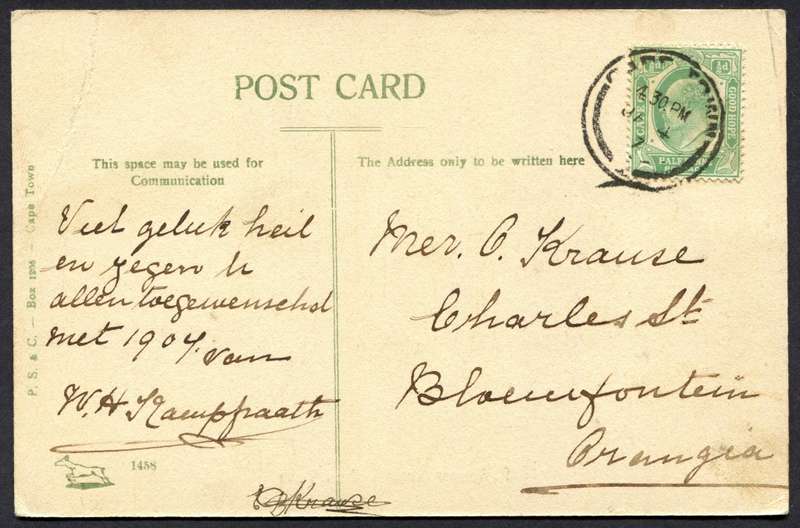 POST CARD
This space may be used for
Communication
The Address only to be written here
Veel geluk heil
en zegen U
allen toegewenschd
met 1907. van
W. H. Kamppraath
Mev. C. Krause
Charles St
Bloemfontein
Orangia
Krause
1458
P. S. & C. — Box 1206 — Cape Town
CAPE TOWN
4.30 PM
GOOD HOPE